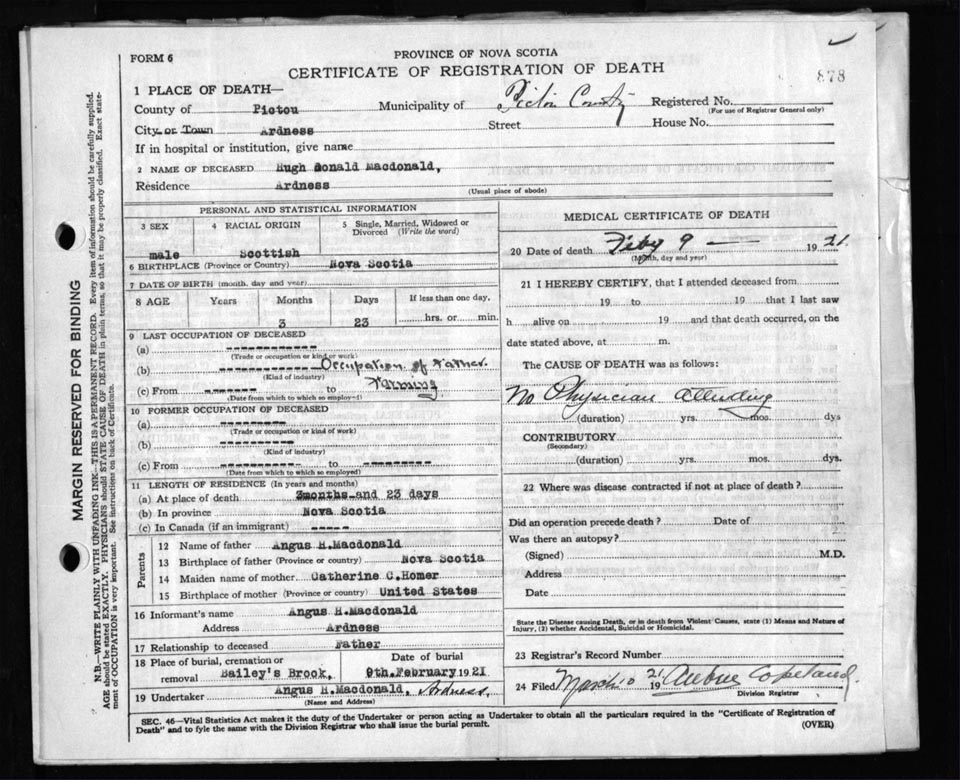 PROVINCE OF NOVA SCOTIA
FORM 6
CERTIFICATE OF REGISTRATION OF DEATH
878
1 PLACE OF DEATH—
County of Pictou Municipality of Pictou County Registered No.
(For use of Registrar General only)
City or Town Ardness Street House No.
If in hospital or institution, give name
2 NAME OF DECEASED Hugh Donald Macdonald,
Residence Ardness
(Usual place of abode)
PERSONAL AND STATISTICAL INFORMATION
3 SEX 4 RACIAL ORIGIN 5 Single, Married, Widowed or
Divorced (Write the word)
male Scottish
6 BIRTHPLACE (Province or Country) Nova Scotia
7 DATE OF BIRTH (month, day and year)
8 AGE Years Months Days If less than one day,
3 23 hrs. or min.
9 LAST OCCUPATION OF DECEASED
(a) ------------
(Trade or occupation or kind or work)
(b) ------------ Occupation of Father.
(Kind of industry)
(c) From ------ to Farming
(Date from which to which so employed)
10 FORMER OCCUPATION OF DECEASED
(a) ----------
(Trade or occupation or kind of work)
(b) ----------
(Kind of industry)
(c) From ----------- to ---------
(Date from which to which so employed)
11 LENGTH OF RESIDENCE (In years and months)
(a) At place of death 3months and 23 days
(b) In province Nova Scotia
(c) In Canada (if an immigrant) -----
Parents
12 Name of father Angus H.Macdonald
13 Birthplace of father (Province or country) Nova Scotia
14 Maiden name of mother Catherine C.Homer
15 Birthplace of mother (Province or country) United States
16 Informant's name Angus H.Macdonald
Address Ardness
17 Relationship to deceased Father
18 Place of burial, cremation or Date of burial
removal Bailey's Brook, 9th.February 1921
19 Undertaker Angus H.Macdonald, Ardness.
(Name and Address)
MEDICAL CERTIFICATE OF DEATH
20 Date of death Feby 9 — 1921.
(Month, day and year)
21 I HEREBY CERTIFY, that I attended deceased from
19 to 19 that I last saw
h alive on 19 and that death occurred, on the
date stated above, at m.
The CAUSE OF DEATH was as follows:
No Physician attending
(duration) yrs. mos. dys
CONTRIBUTORY
(Secondary)
(duration) yrs. mos. dys.
22 Where was disease contracted if not at place of death?
Did an operation precede death? Date of
Was there an autopsy?
(Signed) M.D.
Address
Date
State the Disease causing Death, or in death from Violent Causes, state (1) Means and Nature of
Injury, (2) whether Accidental, Suicidal or Homicidal.
23 Registrar's Record Number
24 Filed March 10 1921 Copeland.
Division Registrar
SEC. 46—Vital Statistics Act makes it the duty of the Undertaker or person acting as Undertaker to obtain all the particulars required in the "Certificate of Registration of
Death" and to fyle the same with the Division Registrar who shall issue the burial permit. (OVER)
MARGIN RESERVED FOR BINDING
N.B.—WRITE PLAINLY WITH UNFADING INK—THIS IS A PERMANENT RECORD. Every item of information should be carefully supplied.
AGE should be stated EXACTLY. PHYSICIANS should STATE CAUSE OF DEATH in plain terms, so that it may be properly classified. Exact statement of OCCUPATION is very important. See instructions on back of Certificate.